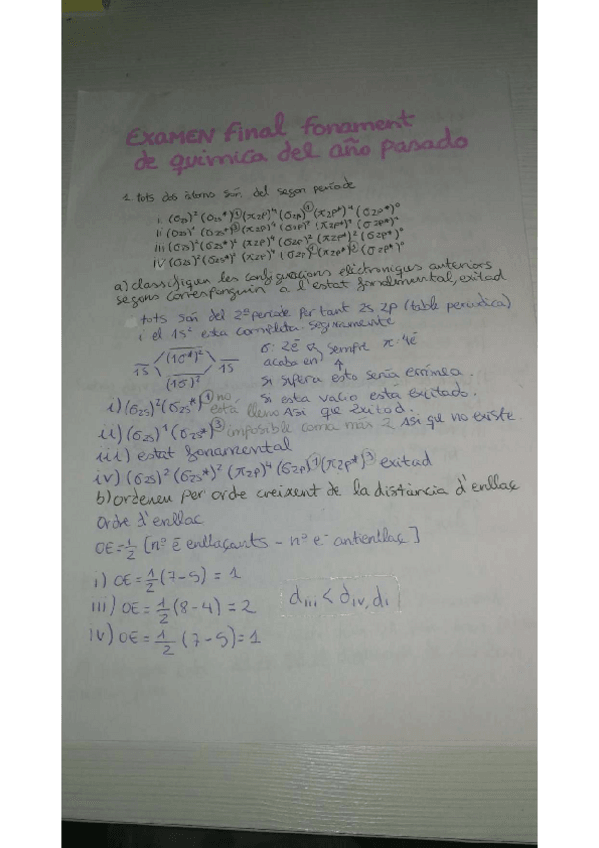 EXAMEN final fonament
de quimica del año pasado
1 tots dos àtoms són del segon període
i. (σ2s)² (σ2s*)① (π2p)⁴ (σ2p)① (π2p*)⁴ (σ2p*)⁰
ii (σ2s)¹ (σ2s*)③ (π2p)⁴ (σ2p)² (π2p*)⁴ (σ2p*)⁰
iii (σ2s)² (σ2s*)² (π2p)⁴ (σ2p)² (π2p*)² (σ2p*)⁰
iv (σ2s)² (σ2s*)² (π2p)⁴ (σ2p)① (π2p*)③ (σ2p*)⁰
a) classifiquen les configuracions electroniques anteriors
segons corresponguin a l'estat fonalmental, exitad
tots són del 2º periode Per tant 2s 2p (table periodica)
i el 1s² esta completa seguramente
(1σ*)²
1s 1s
(1σ)²
σ: 2ē sempre π: 4ē
acaba en 4
si supera esto seria errónea.
si esta vacio està exitado.
i) (σ2s)² (σ2s*)① no está lleno Así que Exitod.
ii) (σ2s)¹ (σ2s*)③ imposible coma más 2 Así que no existe
iii) estat fonamental
iv) (σ2s)² (σ2s*)² (π2p)⁴ (σ2p)① (π2p*)③ exitad
b) ordeneu per orde creixent de la distància d'enllaç
Orde d'enllac
OE = 1/2 [nº ē enllaçants - nº e⁻ antienllaç]
i) OE = 1/2 (7-5) = 1
iii) OE = 1/2 (8-4) = 2
diii < div, di
iv) OE = 1/2 (7-5) = 1